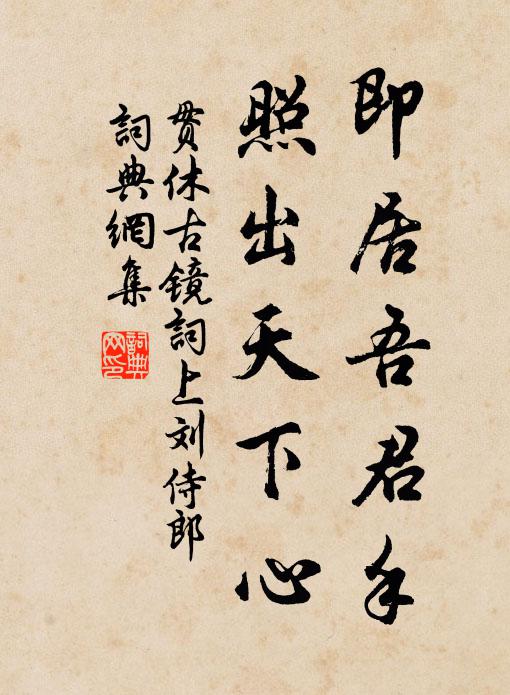 即居吾君手
照出天下心
贯休古镜詞上刘侍郎
詞典網集
詞典网印